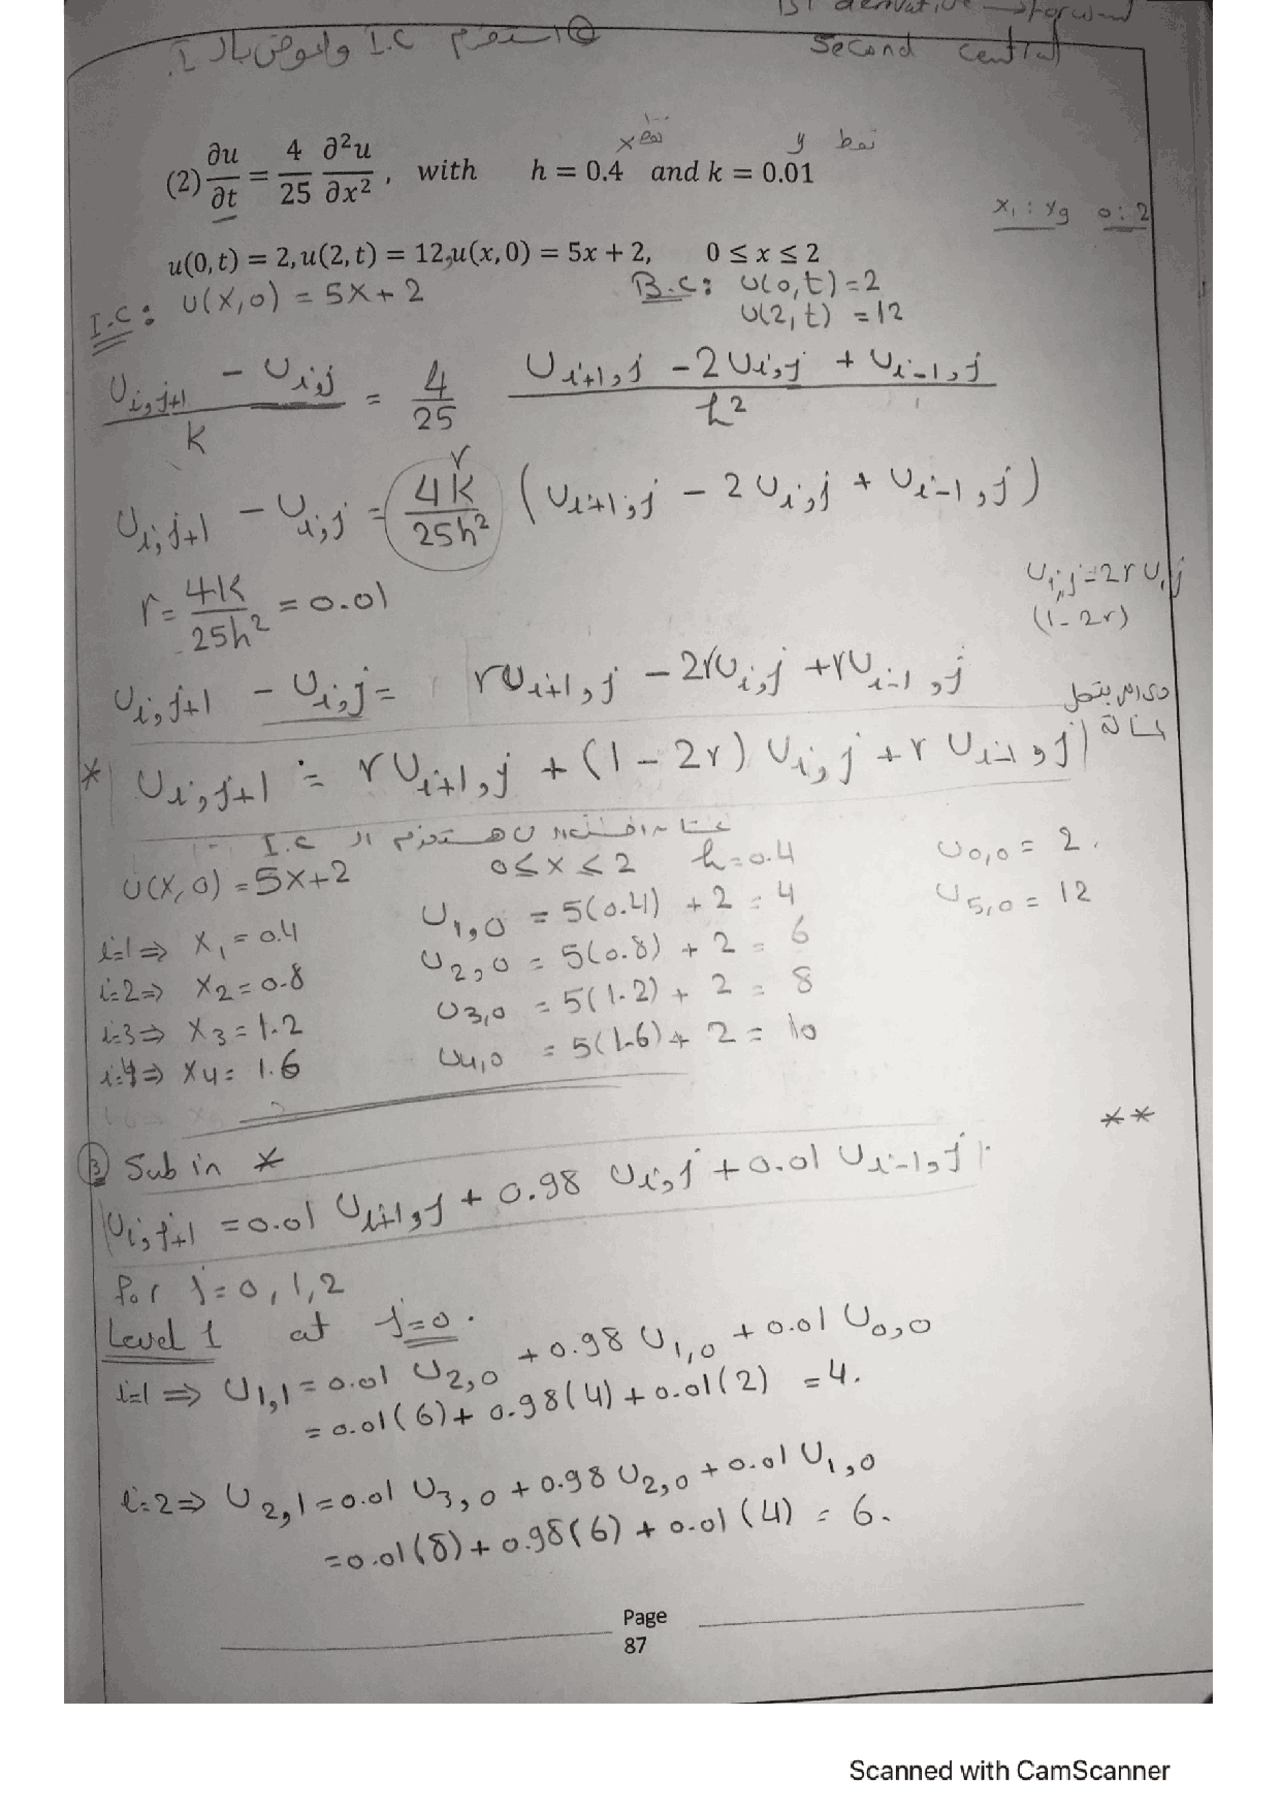 1st derivative → forward
Second central
② استخدم I.C واعوض بال i.
(2) ∂u/∂t = 4/25 ∂²u/∂x², with h = 0.4 and k = 0.01
x
y
x₁ : x₉ 0 : 2
u(0, t) = 2, u(2, t) = 12, u(x, 0) = 5x + 2, 0 ≤ x ≤ 2
I.C: U(x,0) = 5x + 2
B.C: U(0,t) = 2
U(2,t) = 12
(U_{i,j+1} - U_{i,j}) / k = 4/25 (U_{i+1,j} - 2U_{i,j} + U_{i-1,j}) / h²
r
U_{i,j+1} - U_{i,j} = 4k/25h² (U_{i+1,j} - 2U_{i,j} + U_{i-1,j})
r = 4k/25h² = 0.01
U_{i,j} - 2rU_{i,j}
(1 - 2r)
U_{i,j+1} - U_{i,j} = rU_{i+1,j} - 2rU_{i,j} + rU_{i-1,j}
* U_{i,j+1} = rU_{i+1,j} + (1 - 2r) U_{i,j} + r U_{i-1,j}
هستخدم ال I.C
U(x,0) = 5x + 2 0 ≤ x ≤ 2 h = 0.4
U_{0,0} = 2.
U_{5,0} = 12
i=1 ⇒ x₁ = 0.4 U_{1,0} = 5(0.4) + 2 = 4
i=2 ⇒ x₂ = 0.8 U_{2,0} = 5(0.8) + 2 = 6
i=3 ⇒ x₃ = 1.2 U_{3,0} = 5(1.2) + 2 = 8
i=4 ⇒ x₄ = 1.6 U_{4,0} = 5(1.6) + 2 = 10
③ Sub in *
**
U_{i,j+1} = 0.01 U_{i+1,j} + 0.98 U_{i,j} + 0.01 U_{i-1,j}
for j = 0, 1, 2
Level 1 at j=0.
i=1 ⇒ U_{1,1} = 0.01 U_{2,0} + 0.98 U_{1,0} + 0.01 U_{0,0}
= 0.01(6) + 0.98(4) + 0.01(2) = 4.
i=2 ⇒ U_{2,1} = 0.01 U_{3,0} + 0.98 U_{2,0} + 0.01 U_{1,0}
= 0.01(8) + 0.98(6) + 0.01(4) = 6.
Page
87
Scanned with CamScanner